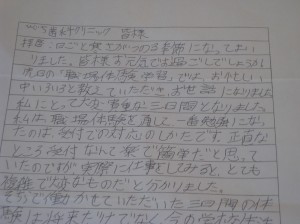 歯科クリニック 皆様
拝啓 日ごと秋さがつのる季節になってまい
りました。皆様お元気でお過ごしでしょうか
先日の「職場体験学習」では、お忙しい
中いろいろ教えていただき、お世話になりました
私にとって大変貴重な三日間となりました。
私は職場体験を通して一番勉強にな
ったのは、受付での対応のしかたです。正直な
ところ受付なんて楽で簡単だと思って
いたのですが実際に仕事をしてみると、とても
複雑で大変なものだと分かりました。
そちらで働かせていただいた三日間の体
験は将来だけでなく、今の学校生活